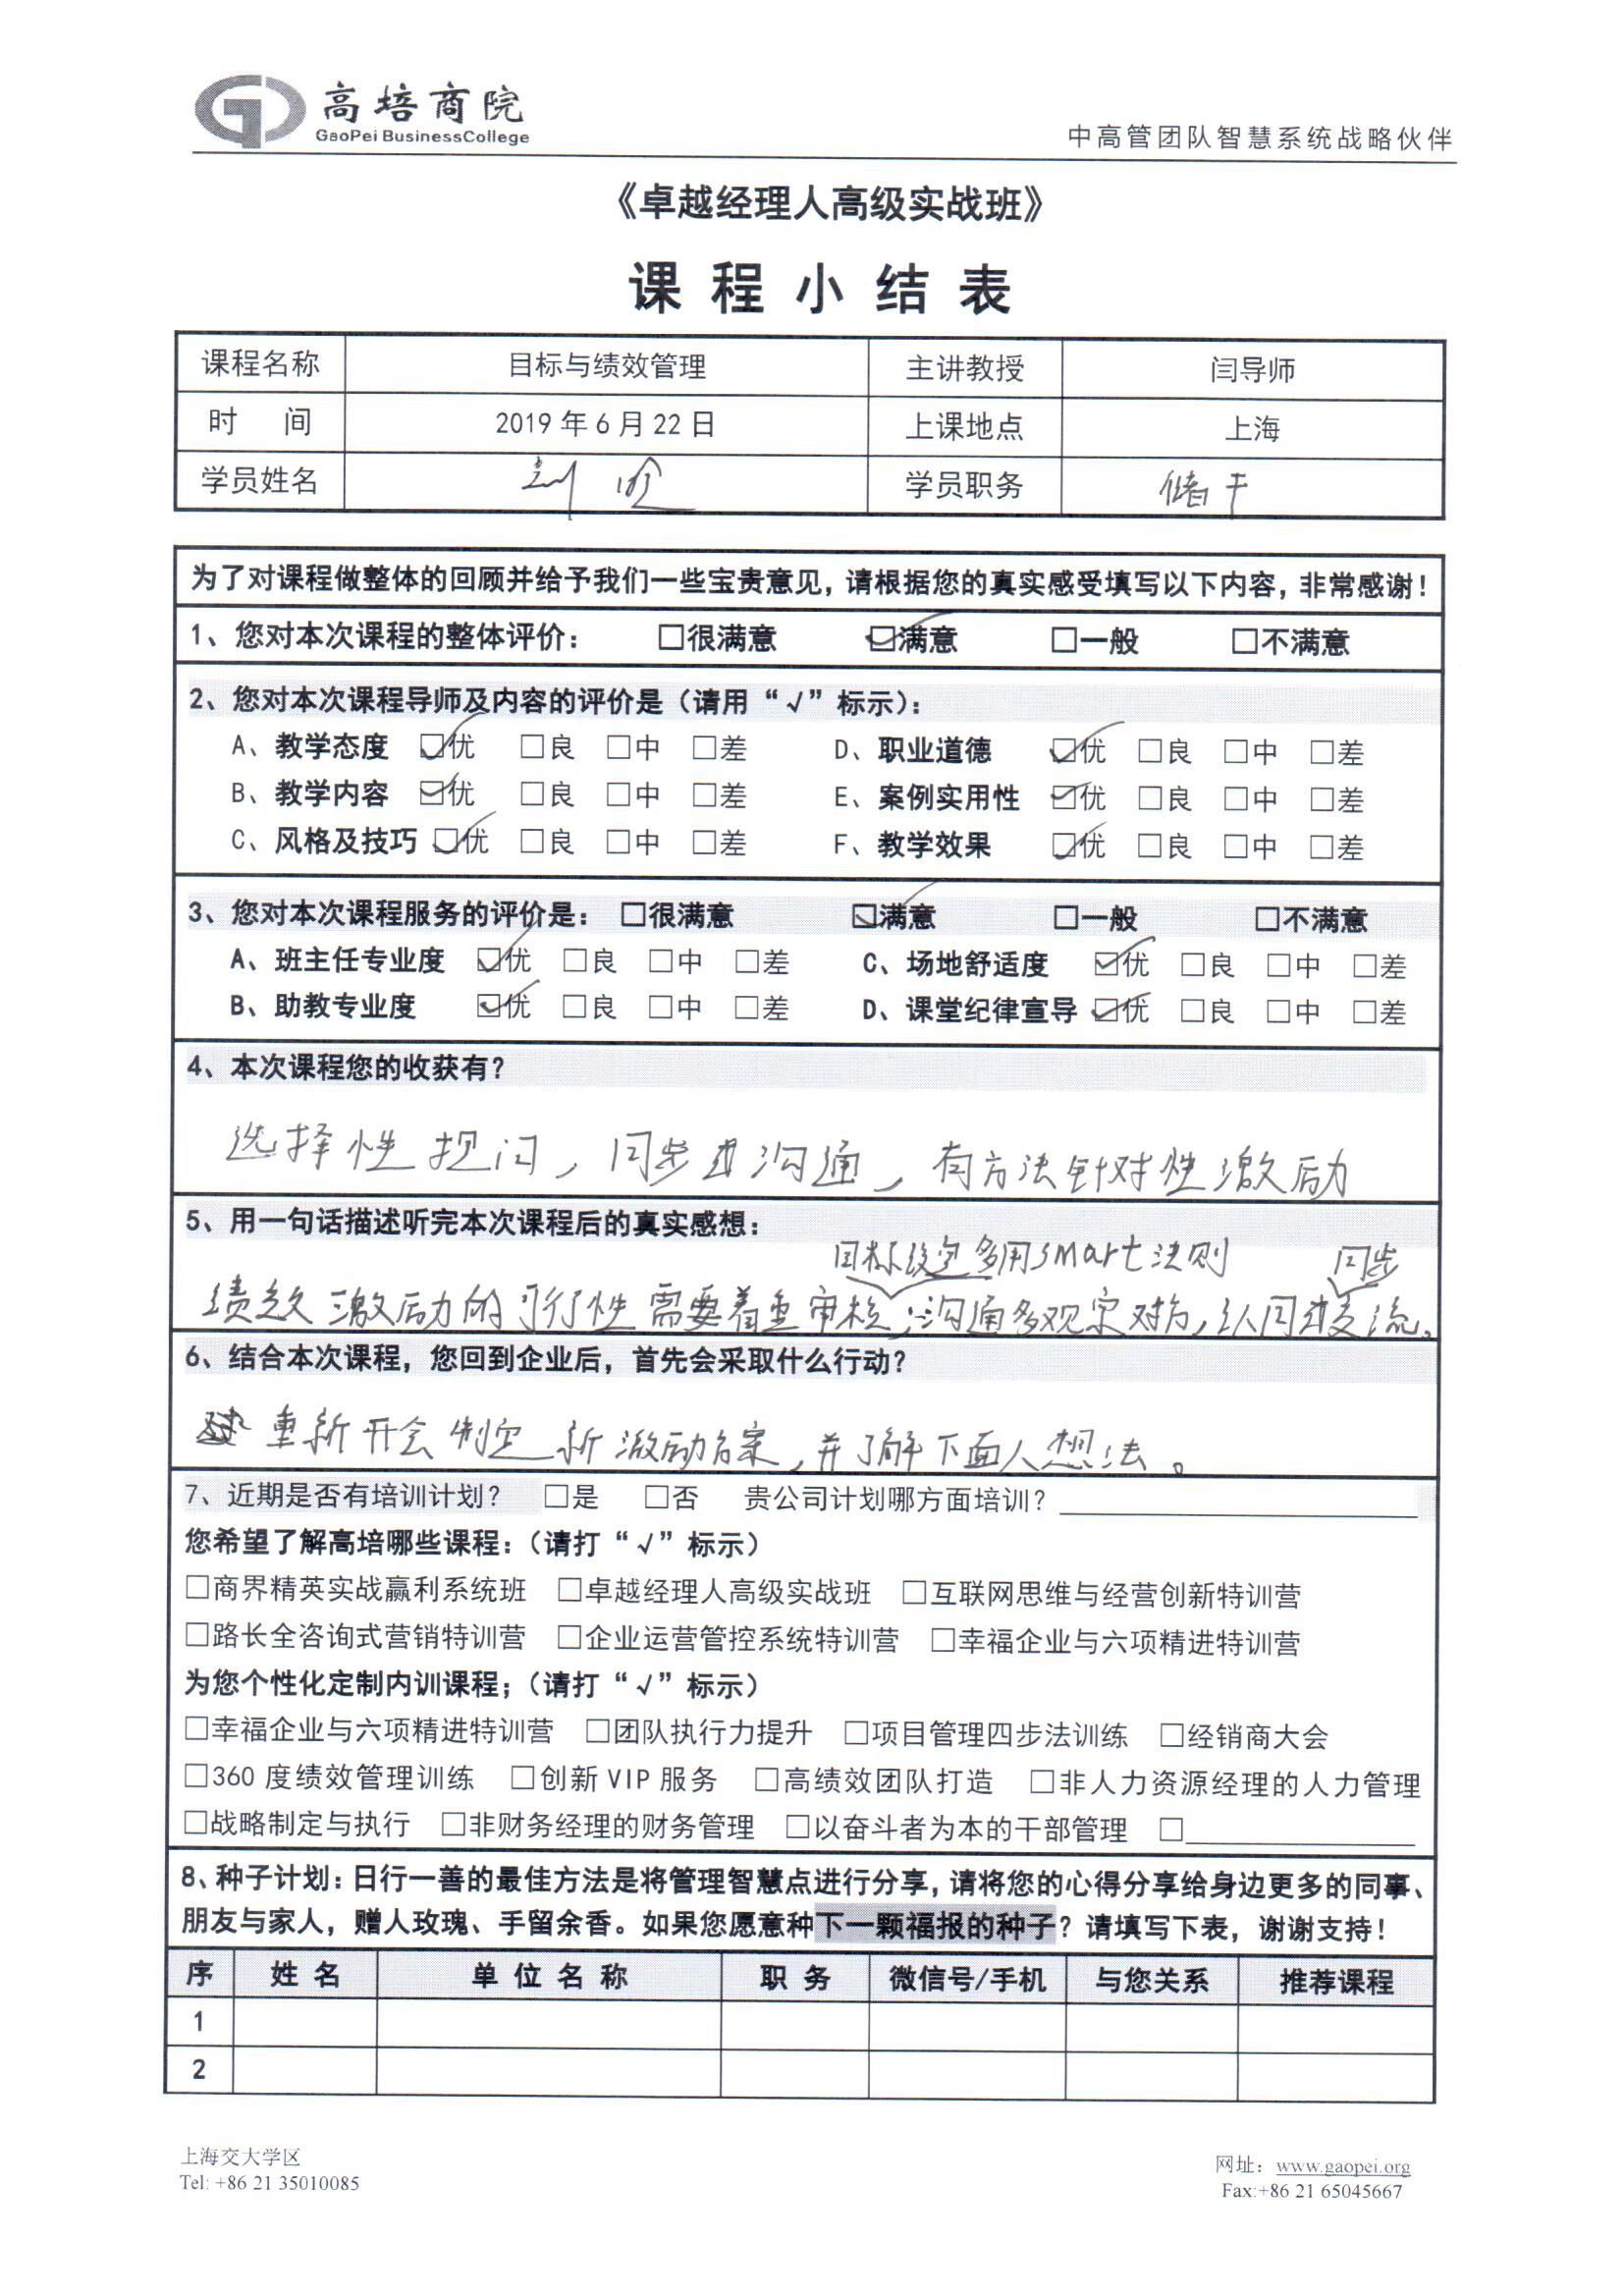 高培商院
GaoPei BusinessCollege
中高管团队智慧系统战略伙伴
《卓越经理人高级实战班》
课程小结表
课程名称 目标与绩效管理 主讲教授 闫导师
时 间 2019年6月22日 上课地点 上海
学员姓名 刘 学员职务 储干
为了对课程做整体的回顾并给予我们一些宝贵意见，请根据您的真实感受填写以下内容，非常感谢！
1、您对本次课程的整体评价： □很满意 ☑满意 □一般 □不满意
2、您对本次课程导师及内容的评价是（请用“√”标示）：
A、教学态度 ☑优 □良 □中 □差 D、职业道德 ☑优 □良 □中 □差
B、教学内容 ☑优 □良 □中 □差 E、案例实用性 ☑优 □良 □中 □差
C、风格及技巧 ☑优 □良 □中 □差 F、教学效果 ☑优 □良 □中 □差
3、您对本次课程服务的评价是： □很满意 ☑满意 □一般 □不满意
A、班主任专业度 ☑优 □良 □中 □差 C、场地舒适度 ☑优 □良 □中 □差
B、助教专业度 ☑优 □良 □中 □差 D、课堂纪律宣导 ☑优 □良 □中 □差
4、本次课程您的收获有？
选择性提问，同步沟通，有方法针对性激励
5、用一句话描述听完本次课程后的真实感想：
目标设定多用smart法则 同步
绩效激励的可行性需要着重审核；沟通多观察对方，认同或交流。
6、结合本次课程，您回到企业后，首先会采取什么行动？
重新开会制定新激励方案，并了解下面人想法。
7、近期是否有培训计划？ □是 □否 贵公司计划哪方面培训？
您希望了解高培哪些课程：（请打“√”标示）
□商界精英实战赢利系统班 □卓越经理人高级实战班 □互联网思维与经营创新特训营
□路长全咨询式营销特训营 □企业运营管控系统特训营 □幸福企业与六项精进特训营
为您个性化定制内训课程；（请打“√”标示）
□幸福企业与六项精进特训营 □团队执行力提升 □项目管理四步法训练 □经销商大会
□360度绩效管理训练 □创新VIP服务 □高绩效团队打造 □非人力资源经理的人力管理
□战略制定与执行 □非财务经理的财务管理 □以奋斗者为本的干部管理 □
8、种子计划：日行一善的最佳方法是将管理智慧点进行分享，请将您的心得分享给身边更多的同事、
朋友与家人，赠人玫瑰、手留余香。如果您愿意种下一颗福报的种子？请填写下表，谢谢支持！
序 姓名 单位名称 职务 微信号/手机 与您关系 推荐课程
1
2
上海交大学区
Tel: +86 21 35010085
网址：www.gaopei.org
Fax:+86 21 65045667